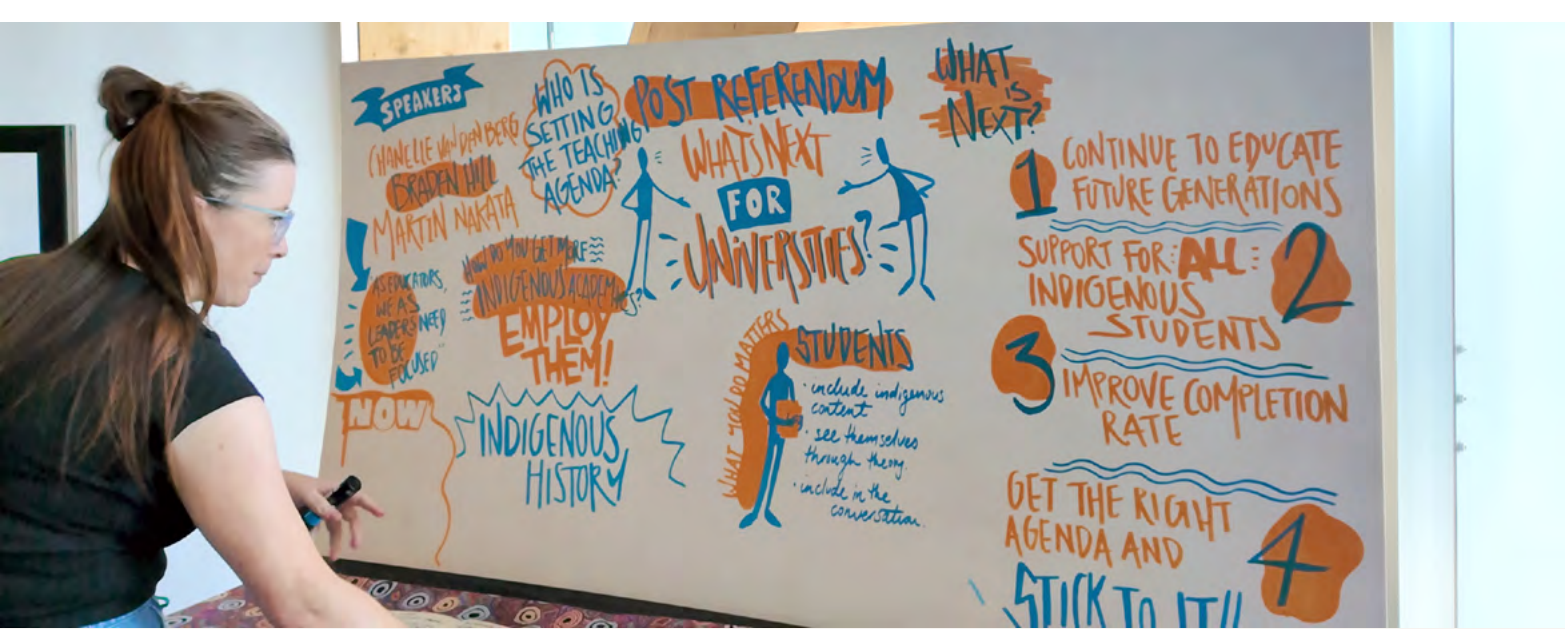 SPEAKERS
CHANELLE VAN DEN BERG
BRADEN HILL
MARTIN NAKATA
"AS EDUCATORS,
WE AS
LEADERS NEED
TO BE
FOCUSED"
NOW
WHO IS
SETTING
THE TEACHING
AGENDA?
HOW DO YOU GET MORE
INDIGENOUS ACADEMICS?
EMPLOY
THEM!
INDIGENOUS
HISTORY
POST REFERENDUM
WHAT'S NEXT
FOR
UNIVERSITIES?
WHAT YOU DO MATTERS
STUDENTS
• include indigenous
content
• see themselves
through theory.
• include in the
conversation.
WHAT
IS
NEXT?
1 CONTINUE TO EDUCATE
FUTURE GENERATIONS
2 SUPPORT FOR ALL
INDIGENOUS
STUDENTS
3 IMPROVE COMPLETION
RATE
4 GET THE RIGHT
AGENDA AND
STICK TO IT!!